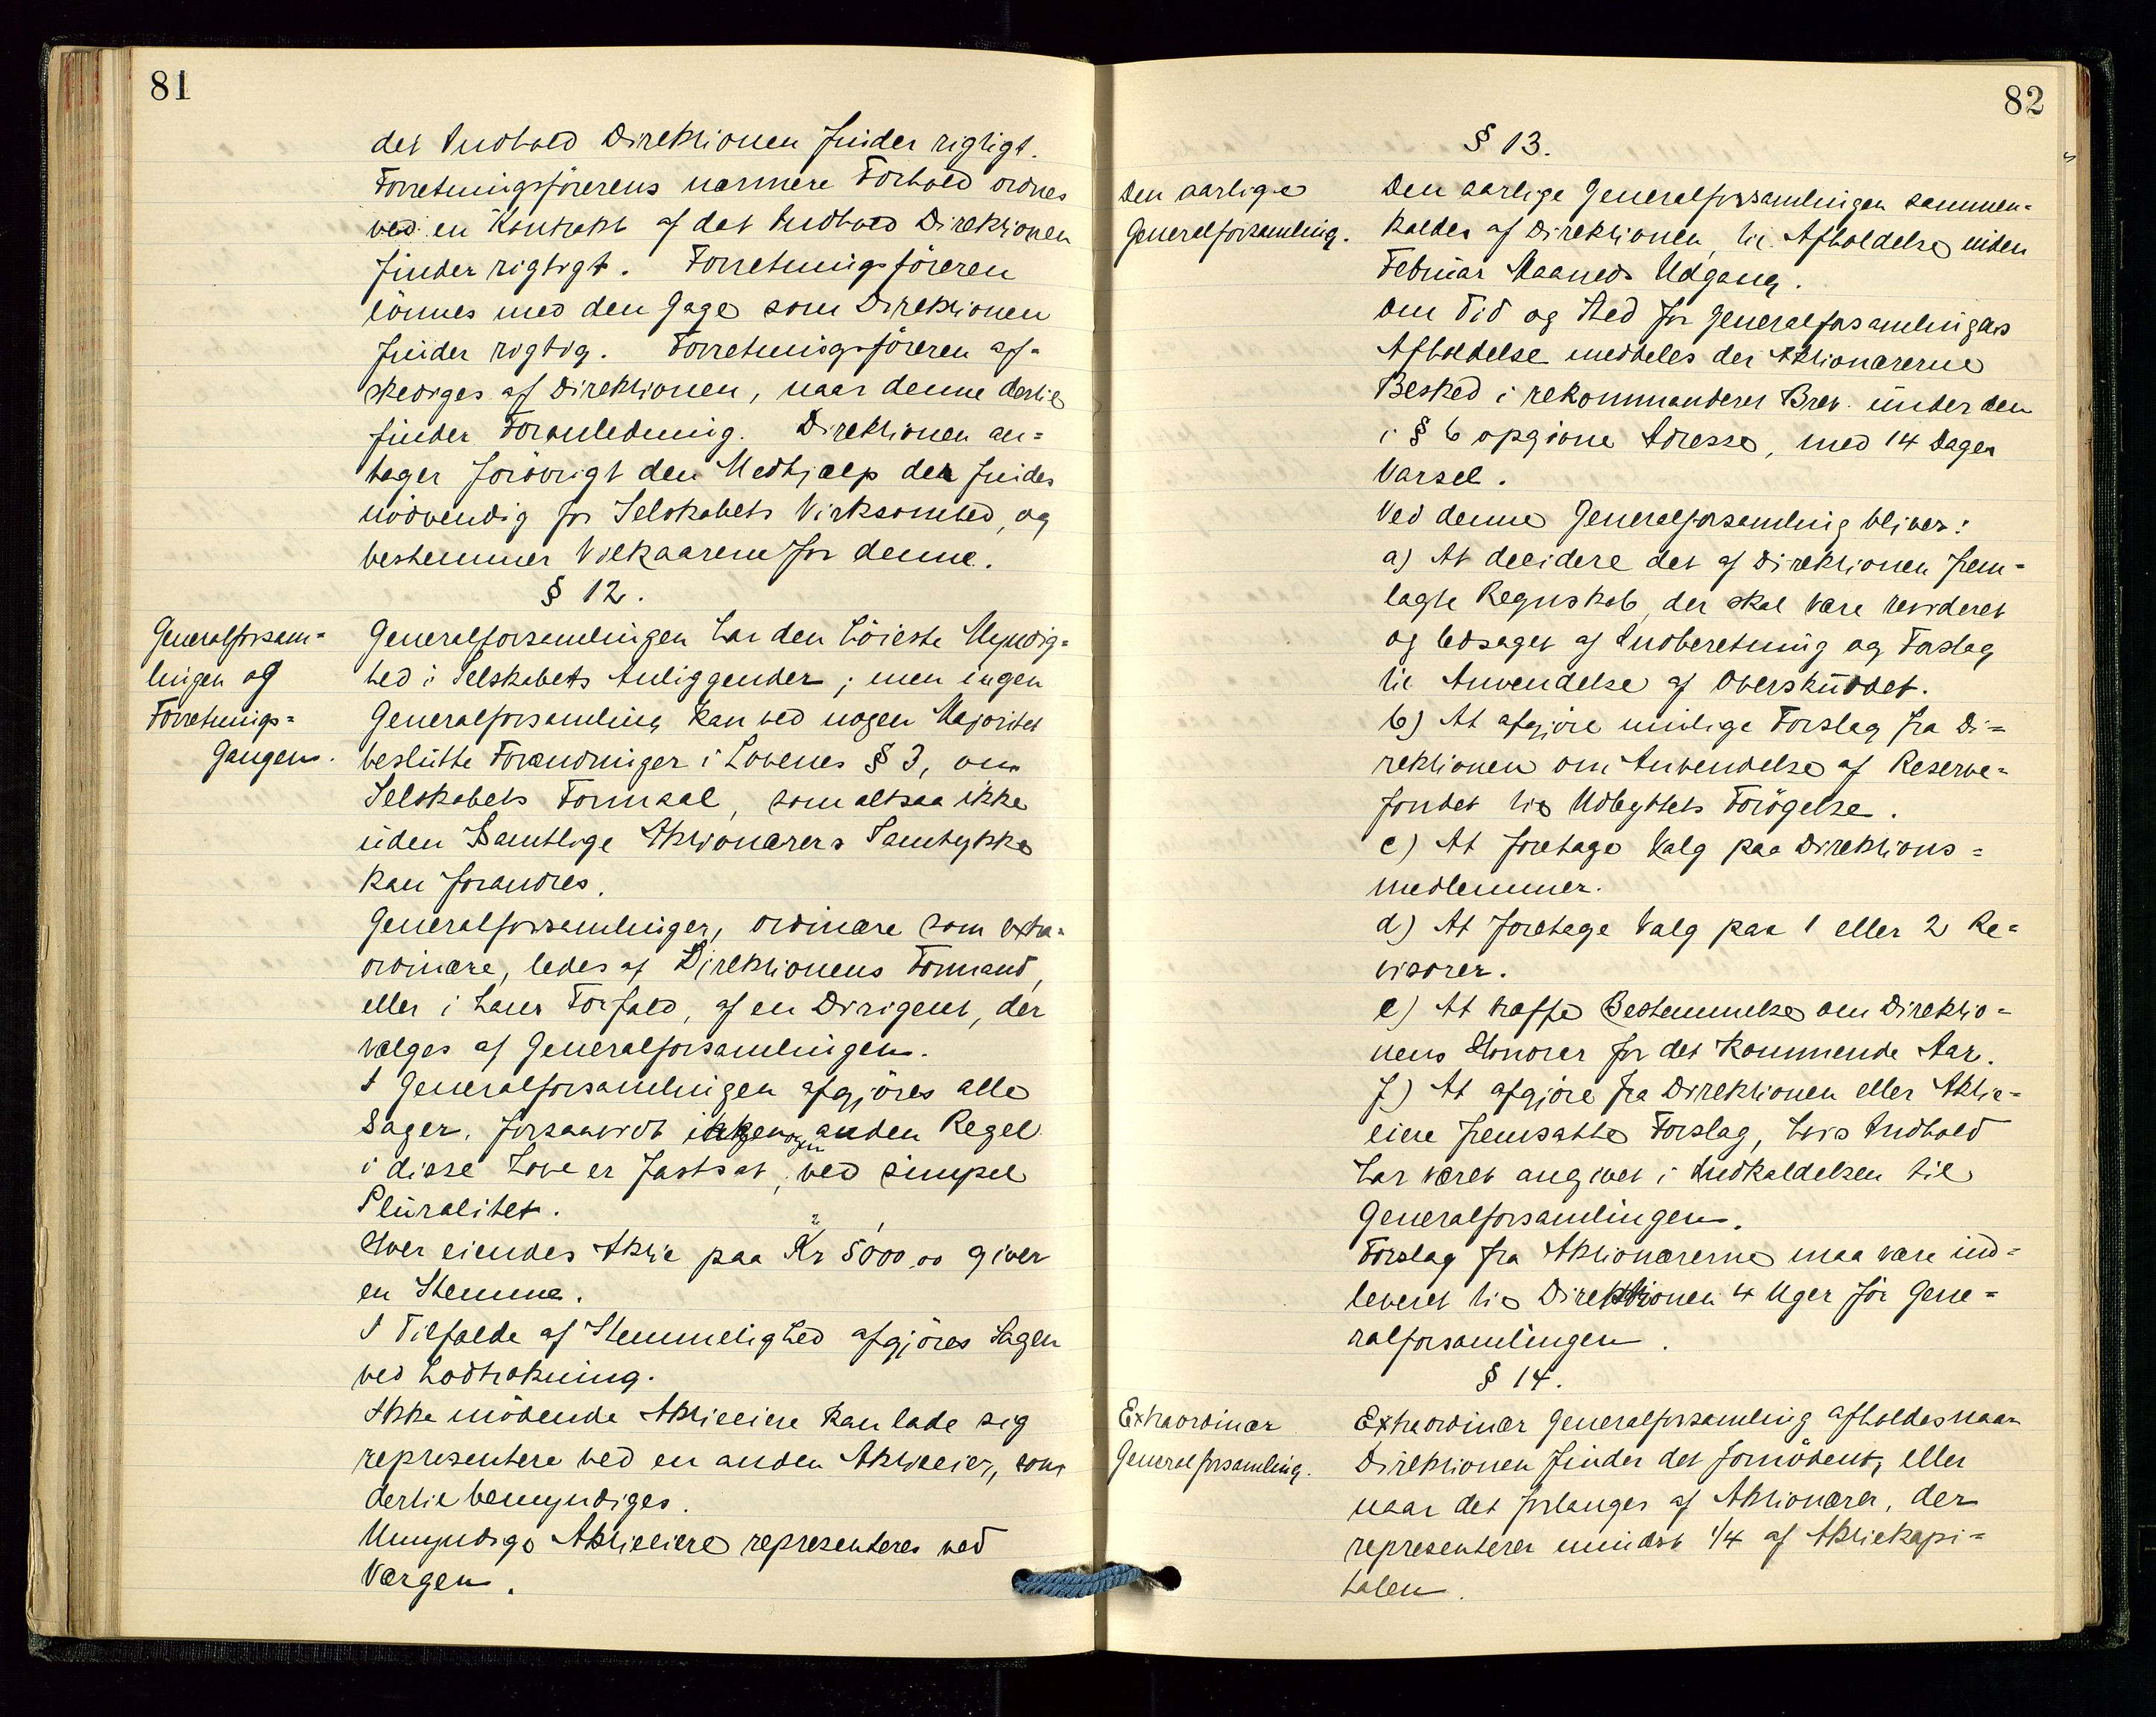 81
det Indhold Direktionen finder rigtigt.
Forretningsförerens nærmere Forhold ordnes
ved en Kontrakt af det Indhold Direktionen
finder rigtigt. Forretningsföreren
lönnes med den Gage som Direktionen
finder rigtig. Forretningsföreren af-
skediges af Direktionen, naar denne dertil
finder Foranledning. Direktionen an=
tager forövrigt den Medhjælp der findes
nödvendig for Selskabets Virksomhed, og
bestemmer Vilkaarene for denne.
§ 12.
Generalforsam=
lingen og
Forretnings=
Gangen.
Generalforsamlingen har den höieste Myndig=
hed i Selskabets Anliggender; men ingen
Generalforsamling kan ved nogen Majoritet
beslutte Forandringer i Lovenes § 3, om
Selskabets Formaal, som altsaa ikke
uden Samtlige Aktionærers Samtykke
kan forandres.
Generalforsamlinger, ordinære som extra-
ordinære, ledes af Direktionens Formand,
eller i hans Forfald, af en Dirigent, der
vælges af Generalforsamlingen.
I Generalforsamlingen afgjöres alle
Sager, forsaavidt ikke nogen anden Regel
i disse Love er fastsat, ved simpel
Pluralitet.
Hver eiendes Aktie paa Kr 5000,00 giver
en Stemme.
I Tilfælde af Stemmelighed afgjöres Sagen
ved Lodtrækning.
Ikke mödende Aktieeiere kan lade sig
representere ved en anden Aktieeier, som
dertil bemyndiges.
Umyndige Aktieeiere representeres ved
Værgen.
82
§ 13.
Den aarlige
Generalforsamling.
Den aarlige Generalforsamlingen sammen=
kaldes af Direktionen, til Afholdelse inden
Februar Maaneds Udgang.
Om Tid og Sted for Generalforsamlingens
Afholdelse meddeles der Aktionærerne
Besked i rekommanderet Brev under den
i § 6 opgivne Adresse, med 14 Dages
Varsel.
Ved denne Generalforsamling bliver:
a) At decidere det af Direktionen frem=
lagte Regnskab, der skal være revideret
og ledsaget af Indberetning og Forslag
til Anvendelse af Overskuddet.
b) At afgjöre mulige Forslag fra Di=
rektionen om Anvendelse af Reserve=
fondet til Udbyttets Forögelse.
c) At foretage Valg paa Direktions=
medlemmer.
d) At foretage Valg paa 1 eller 2 Re=
visorer.
e) At træffe Bestemmelse om Direktio=
nens Honorar for det kommende Aar.
f) At afgjöre fra Direktionen eller Aktie=
eiere fremsatte Forslag, hvis Indhold
har været angivet i Indkaldelsen til
Generalforsamlingen.
Forslag fra Aktionærerne maa være ind=
leveret til Direktionen 4 Uger för Gene=
ralforsamlingen.
§ 14.
Extraordinær
Generalforsamling.
Extraordinær Generalforsamling afholdes naar
Direktionen finder det fornödent, eller
naar det forlanges af Aktionærer, der
representerer mindst 1/4 af Aktiekapi=
talen.